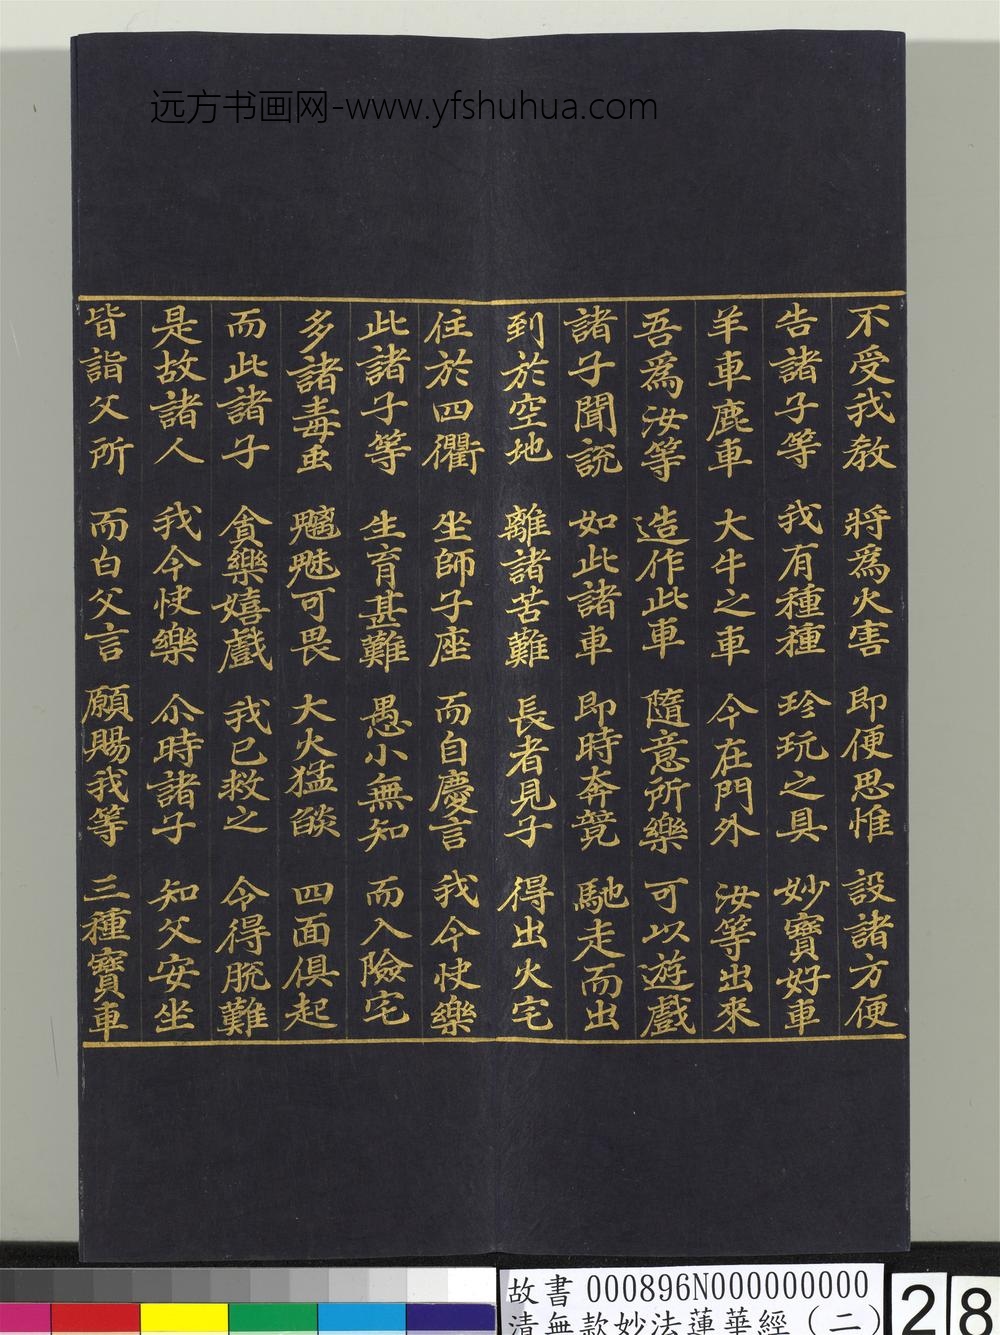 远方书画网-www.yfshuhua.com
不受我教 將為火害 即便思惟 設諸方便
告諸子等 我有種種 珍玩之具 妙寶好車
羊車鹿車 大牛之車 今在門外 汝等出來
吾為汝等 造作此車 隨意所樂 可以遊戲
諸子聞說 如此諸車 即時奔競 馳走而出
到於空地 離諸苦難 長者見子 得出火宅
住於四衢 坐師子座 而自慶言 我今快樂
此諸子等 生育甚難 愚小無知 而入險宅
多諸毒虫 魑魅可畏 大火猛燄 四面俱起
而此諸子 貪樂嬉戲 我已救之 令得脫難
是故諸人 我今快樂 尒時諸子 知父安坐
皆詣父所 而白父言 願賜我等 三種寶車
故書 000896N000000000
清無款妙法蓮華經（二）
28